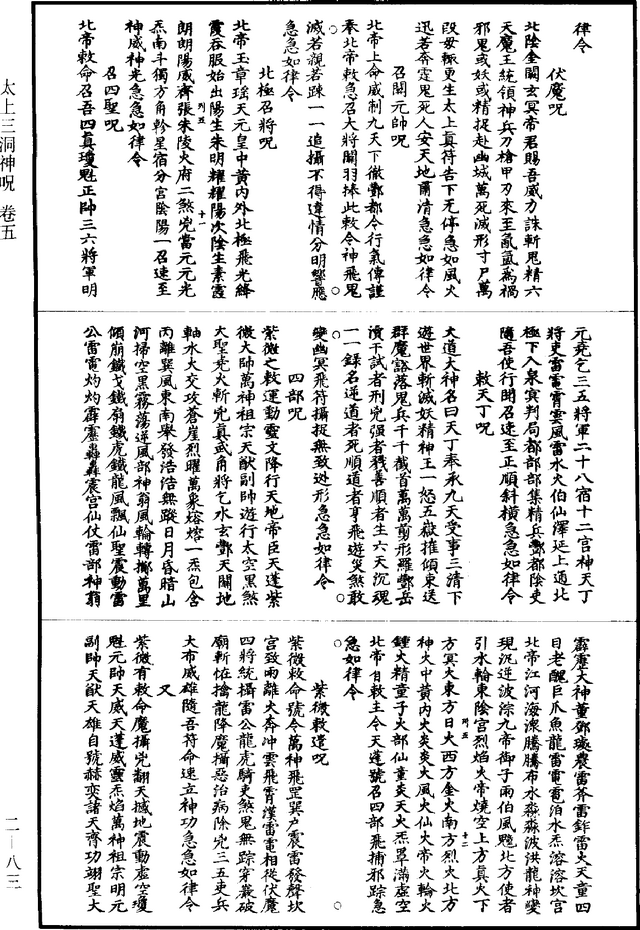 律令
伏魔呪
北陰金闕玄冥帝君賜吾威力誅斬鬼精六
天魔王統領神兵刀槍甲刃來至亂氣為禍
邪鬼或妖或精捉赴幽城萬死滅形寸尸萬
段毋輒更生太上真符告下无停急如風火
迅若奔霆鬼死人安天地肅清急急如律令
召關元帥呪
北帝上命威制九天下徹酆都令行氣傳謹
奉北帝敕急召大將關羽捧此敕令神飛鬼
滅若親若疎一一追攝不得違情分明響應
急急如律令
北極召將呪
北帝玉章瑶天元皇中黃內外北極飛光絳
霞吞服始出陽生朱明耀耀陽次陰生素霞
朗朗陽威齊張朱陵火府二煞兇當元元光
炁南斗獨方角軫星宿分宮陰陽一召速至
神威神光急急如律令
召四聖呪
北帝敕命召吾四真瓊魁正帥三六將軍明
元堯乞三五將軍二十八宿十二宮神天丁
將吏雷電霄雲風雷水火伯仙澤延上通北
極下入泉冥判局都部部集精兵酆都陰吏
隨吾使行聞召速至正順斜橫急急如律令
敕天丁呪
大道大神名曰天丁奉承九天受事三清下
遊世界斬滅妖精神王一怒五嶽摧傾束送
群魔豁落鬼兵千千截首萬萬剪形羅酆岳
瀆干試者刑兇强者戮善順者生六天沉魂
一一錄名逆道者死順道者亨飛遊災煞敢
變幽冥飛符攝捉無致迯形急急如律令
四部呪
紫微之敕運動靈文降行天地帝臣天蓬紫
微大帥萬神祖宗天猷副帥遊行太空黑煞
大聖堯火斬兇真武角將乞水玄酆天關地
軸水火交攻蒼崖烈曜萬象熔熔一炁包含
丙離巽風東南舉發浩浩無蹤日月昏暗山
河掃空黑霧蕩逆風部神翁風輪轉擲萬里
傾崩鐵戈鐵扇鐵虎鐵龍風飄仙聖震動雷
公雷電灼灼霹靂轟轟震宮仙仗雷部神翁
霹靂大神董鄧璈震雷斧雷鉾雷火天童四
目老醜巨爪魚龍雷電電泊水炁溶溶坎宮
北帝江河海潨騰騰布水淼淼波洪龍神變
現沉逆波淙九帝御子雨伯風魁北方使者
引水輪東陰宮烈焰火帝燒空上方真火下
方冥火東方日火西方金火南方烈火北方
神火中黃內火炎炎火風火仙火帝火輪火
鍾火精童子火部仙童炎天火炁罩滿虛空
北帝有敕主令天蓬號召四部飛捕邪踪急
急如律令
紫微敕蓬呪
紫微敕命號令萬神飛罡巽戶震雷發聲坎
宮致雨離火奔冲雲飛霄漢雷電相從伏魔
四將統攝雷公龍虎騎吏煞鬼無踪穿巖破
廟斬恠擒龍降魔攝惡治病除兇三五吏兵
大布威雄隨吾符命速立神功急急如律令
又
紫微有敕命魔攝兇翻天撼地震動虛空瓊
魁元帥天威天蓬威靈炁焰萬神祖宗明元
副帥天猷天雄自號赫奕諸天齊功翊聖大
太上三洞神呪　卷五
二—八三
列五　十一
列五　十二